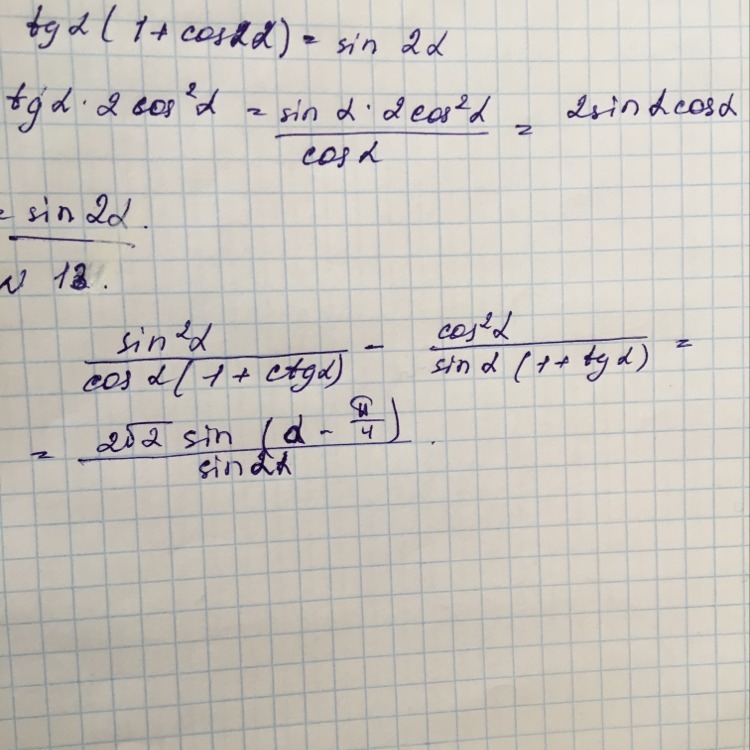 tg α (1 + cos 2α) = sin 2α
tg α · 2 cos²α = (sin α · 2 cos²α)/(cos α) = 2 sin α cos α
= sin 2α.
№ 13.
(sin²α)/(cos α (1 + ctg α)) - (cos²α)/(sin α (1 + tg α)) =
= (2√2 sin (α - π/4))/(sin 2α).